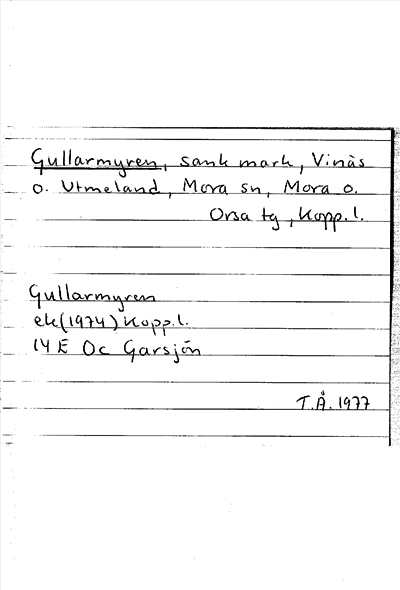 Gullarmyren, sank mark, Vinäs
o. Utmeland, Mora sn, Mora o.
Orsa tg, Kopp.l.
Gullarmyren
ek(1974) Kopp.l.
14 E Oc Garsjön
T.Å. 1977